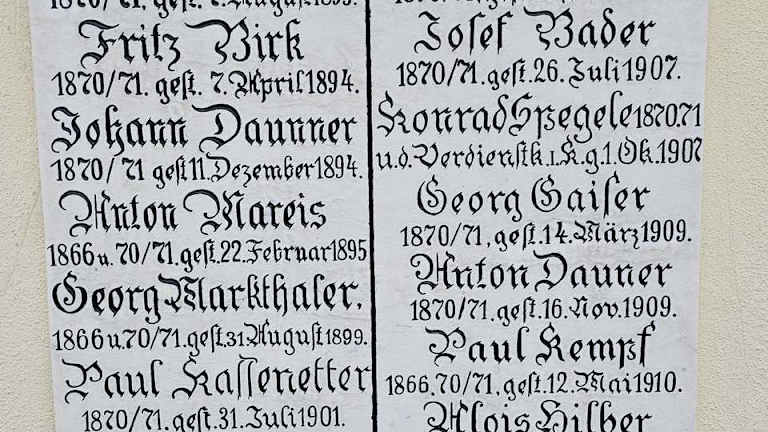 1870/71. gest. 7. August 1893.
Fritz Birk
1870/71. gest. 7. April 1894.
Johann Daunner
1870/71 gest 11. Dezember 1894.
Anton Mareis
1866 u. 70/71. gest. 22. Februar 1895
Georg Markthaler.
1866 u. 70/71. gest. 31 August 1899.
Paul Kassenetter
1870/71. gest. 31. Juli 1901.
Josef Bader
1870/71. gest. 26. Juli 1907.
Konrad Spegele 1870.71
u. d. Verdienstk. i. K. g. 1. Ok. 1907
Georg Gaiser
1870/71, gest. 14. März 1909.
Anton Dauner
1870/71. gest. 16. Nov. 1909.
Paul Kempf
1866. 70/71, gest. 12. Mai 1910.
Alois Hilber